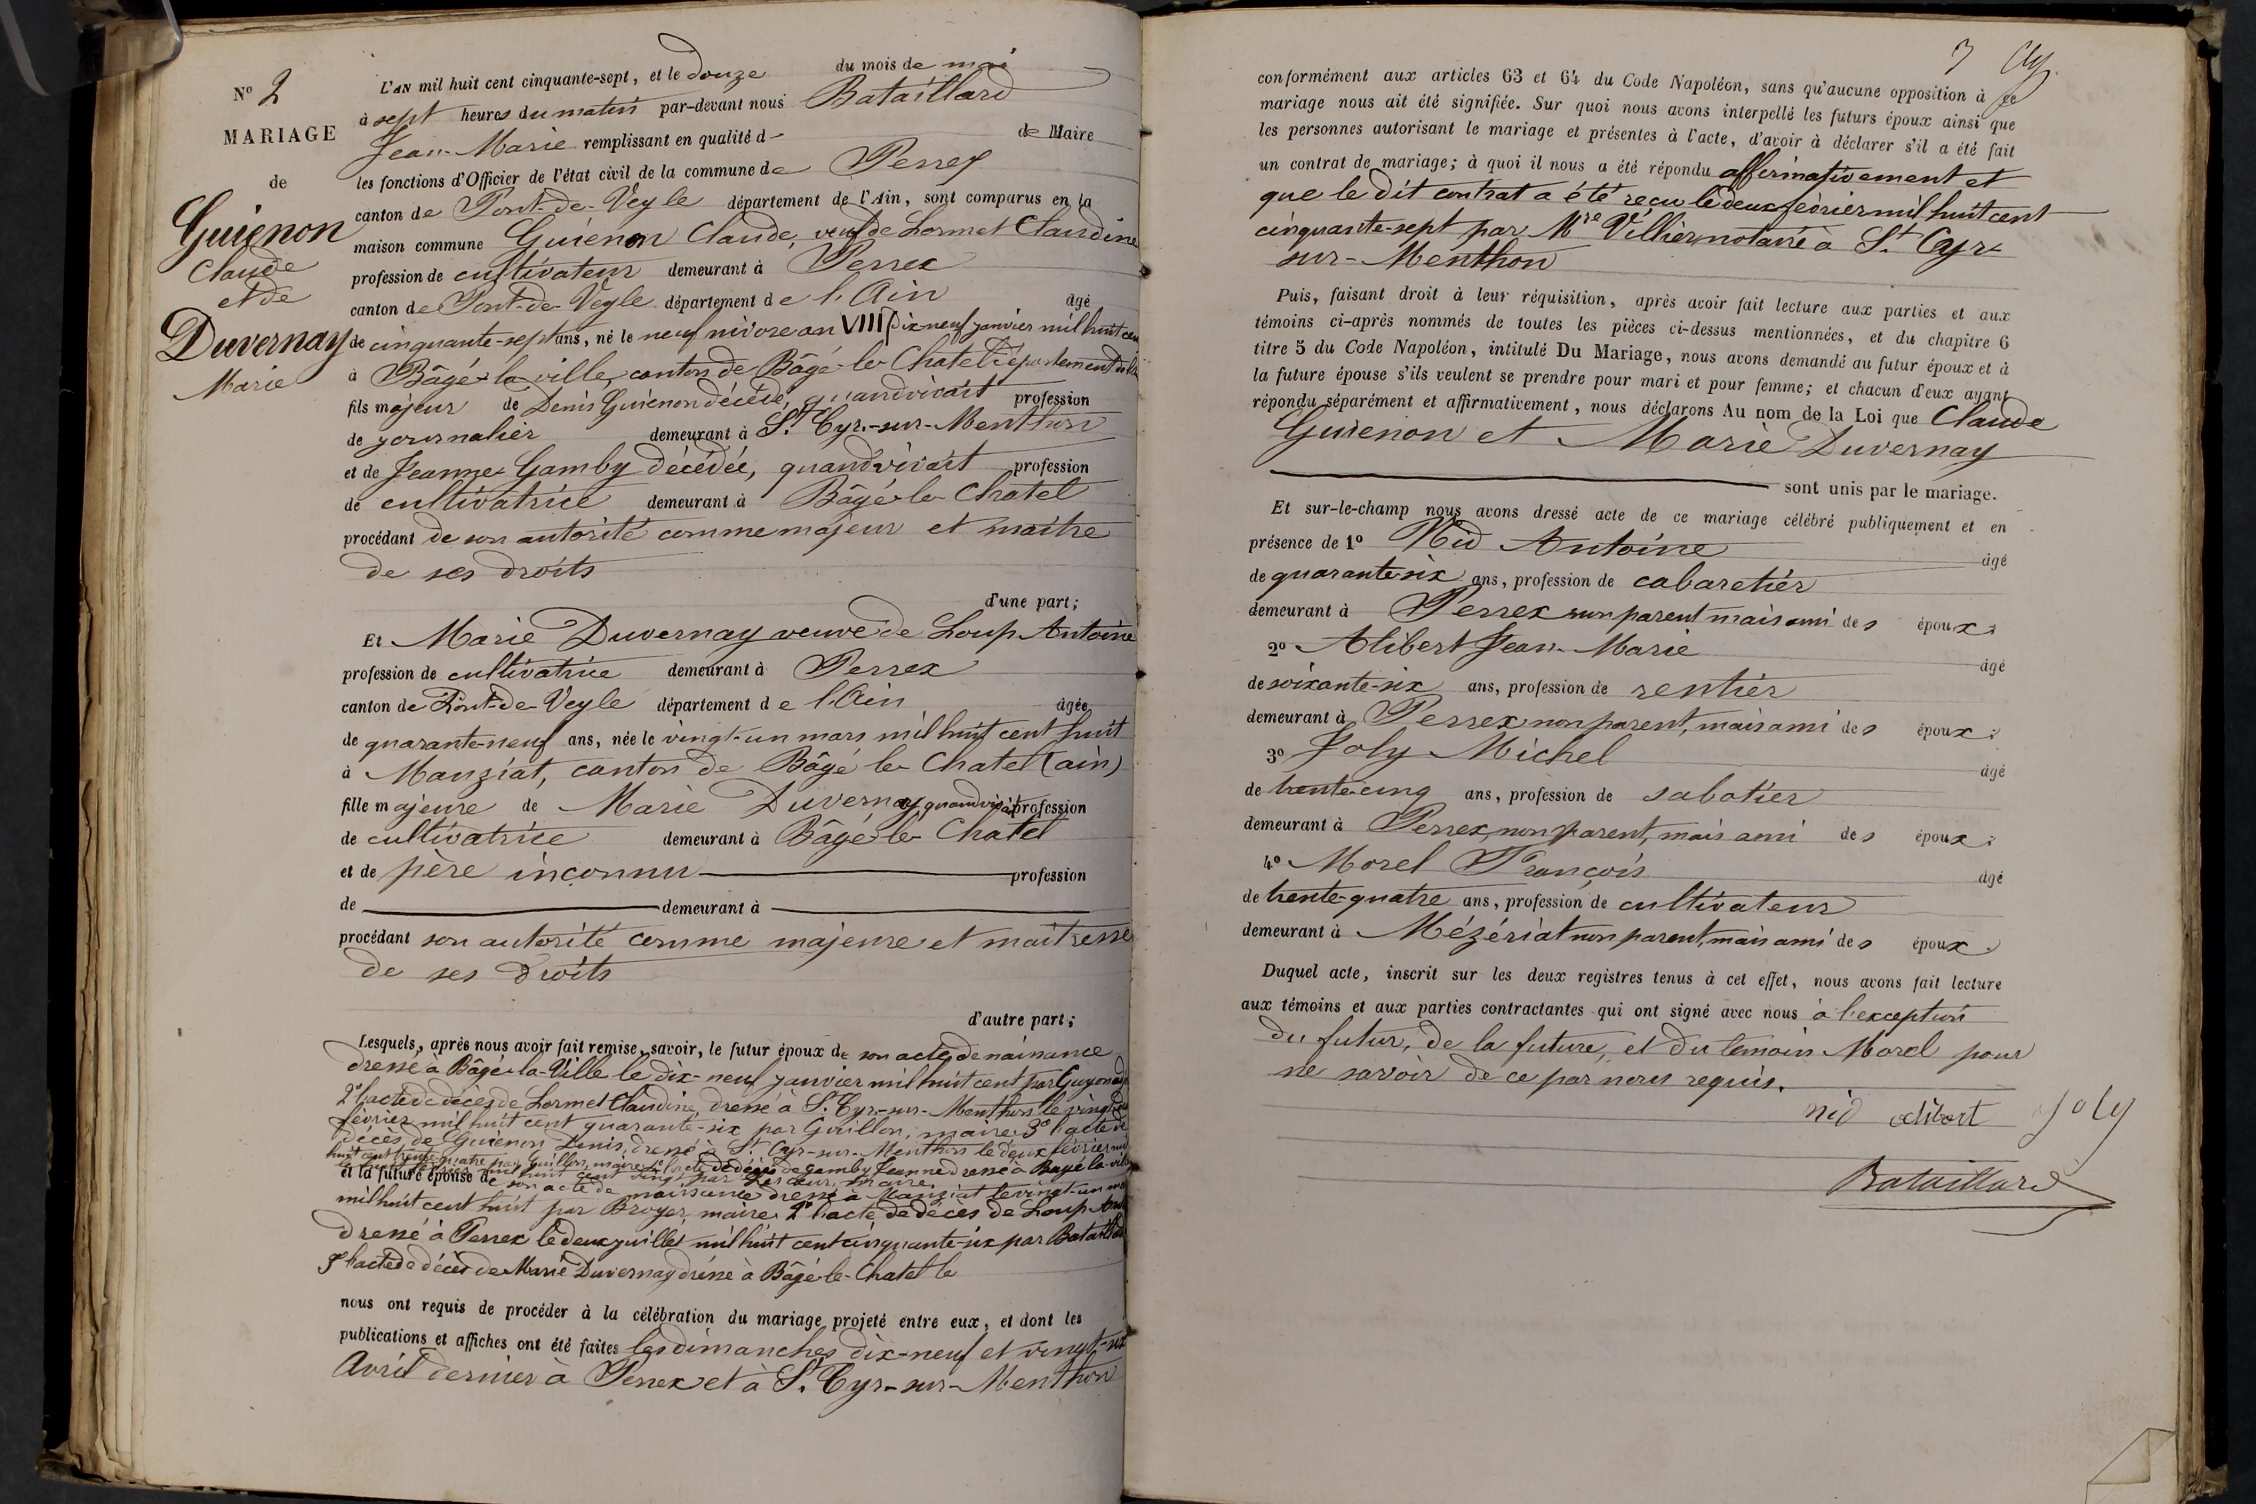 N° 2
MARIAGE
de
Guienon
Claude
et de
Duvernay
Marie
L'AN mil huit cent cinquante-sept, et le douze du mois de mai
à sept heures du matin par-devant nous Bataillard
Jean-Marie remplissant en qualité d- de Maire
les fonctions d'Officier de l'état civil de la commune de Perrex
canton de Pont-de-Veyle département de l'Ain, sont comparus en la
maison commune Guienon Claude, veuf de Lormet Claudine
profession de cultivateur demeurant à Perrex
canton de Pont-de-Veyle département de l'Ain âgé
de cinquante-sept ans, né le neuf nivose an VIII dix neuf janvier mil huit cen
à Bâgé-la-ville, canton de Bâgé-le-Chatel département de l'ain
fils majeur de Denis Guienon décédé, quand vivait profession
de journalier demeurant à St. Cyr-sur-Menthon
et de Jeanne Gamby décédée, quand vivait profession
de cultivatrice demeurant à Bâgé-le-Chatel
procédant de son autorité comme majeur et maître
de ses droits
d'une part;
Et Marie Duvernay veuve de Loup Antoine
profession de cultivatrice demeurant à Perrex
canton de Pont-de-Veyle département de l'Ain âgée
de quarante-neuf ans, née le vingt-un mars mil huit cent huit
à Manziat, canton de Bâgé le Chatel (ain)
fille majeure de Marie Duvernay, quand vivait profession
de cultivatrice demeurant à Bâgé-le-Chatel
et de père inconnu profession
de demeurant à
procédant son autorité comme majeure et maitresse
de ses droits
d'autre part;
Lesquels, après nous avoir fait remise, savoir, le futur époux de son acte de naissance
dressé à Bâgé-la-Ville le dix-neuf janvier mil huit cent par Guyon adj
2° l'acte de décès de Lormet Claudine, dressé à St. Cyr-sur-Menthon le vingt
février mil huit cent quarante-six par Guillon, maire 3° l'acte de
décès de Guienon Denis, dressé à St. Cyr-sur-Menthon le deux février mil
huit cent trente-quatre par Guillon, maire 4° l'acte de décès de Gamby Jeanne dressé à Bagé-la-ville
mil huit cent vingt par maire
et la future épouse de son acte de naissance dressé à Manziat le vingt-un mars
mil huit cent huit par Broyer, maire 2° l'acte de décès de Loup Ant
dressé à Perrex le deux juillet mil huit cent cinquante-six par Bataillard
3° l'acte de décès de Marie Duvernay dressé à Bâgé-le-Chatel le
nous ont requis de procéder à la célébration du mariage projeté entre eux, et dont les
publications et affiches ont été faites les dimanches dix-neuf et vingt-six
Avril dernier à Perrex et à St. Cyr-sur-Menthon
conformément aux articles 63 et 64 du Code Napoléon, sans qu'aucune opposition à ce
mariage nous ait été signifiée. Sur quoi nous avons interpellé les futurs époux ainsi que
les personnes autorisant le mariage et présentes à l'acte, d'avoir à déclarer s'il a été fait
un contrat de mariage; à quoi il nous a été répondu affirmativement et
que le dit contrat a été reçu le deux février mil huit cent
cinquante-sept par Mre Villier notaire à St. Cyr-
sur-Menthon
Puis, faisant droit à leur réquisition, après avoir fait lecture aux parties et aux
témoins ci-après nommés de toutes les pièces ci-dessus mentionnées, et du chapitre 6
titre 5 du Code Napoléon, intitulé Du Mariage, nous avons demandé au futur époux et à
la future épouse s'ils veulent se prendre pour mari et pour femme; et chacun d'eux ayant
répondu séparément et affirmativement, nous déclarons Au nom de la Loi que Claude
Guienon et Marie Duvernay
sont unis par le mariage.
Et sur-le-champ nous avons dressé acte de ce mariage célébré publiquement et en
présence de 1° Nid Antoine âgé
de quarante-six ans, profession de cabaretier
demeurant à Perrex non parent mais ami des époux;
2° Alibert Jean-Marie âgé
de soixante-six ans, profession de rentier
demeurant à Perrex non parent, mais ami des époux;
3° Joly Michel âgé
de trente-cinq ans, profession de sabotier
demeurant à Perrex, non parent, mais ami des époux;
4° Morel François âgé
de trente-quatre ans, profession de cultivateur
demeurant à Mézériat non parent, mais ami des époux.
Duquel acte, inscrit sur les deux registres tenus à cet effet, nous avons fait lecture
aux témoins et aux parties contractantes qui ont signé avec nous à l'exception
du futur, de la future, et du témoin Morel pour
ne savoir de ce par nous requis.
nid alibert joly
Bataillard